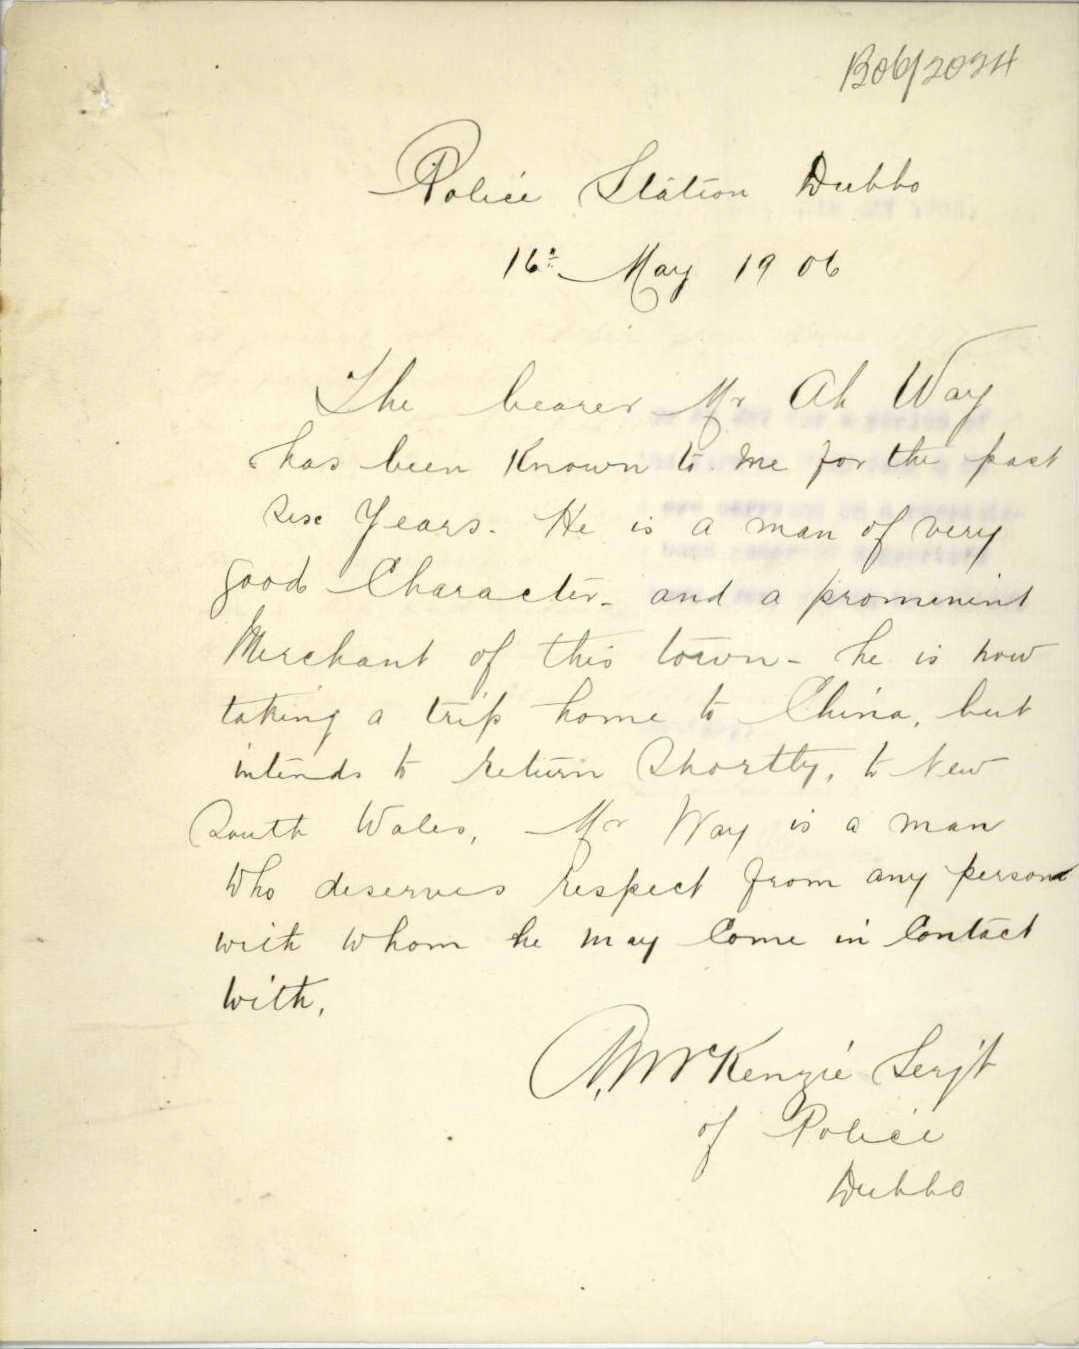 B06/2024
Police Station Dubbo
16th May 1906
The bearer Mr Ah Way
has been Known to me for the past
Six Years. He is a man of very
good Character - and a prominent
Merchant of this town - he is now
taking a trip home to China, but
intends to return Shortly, to New
South Wales, Mr Way is a man
who deserves respect from any person
with whom he may Come in Contact
with,
McKenzie Serjt
of Police
Dubbo